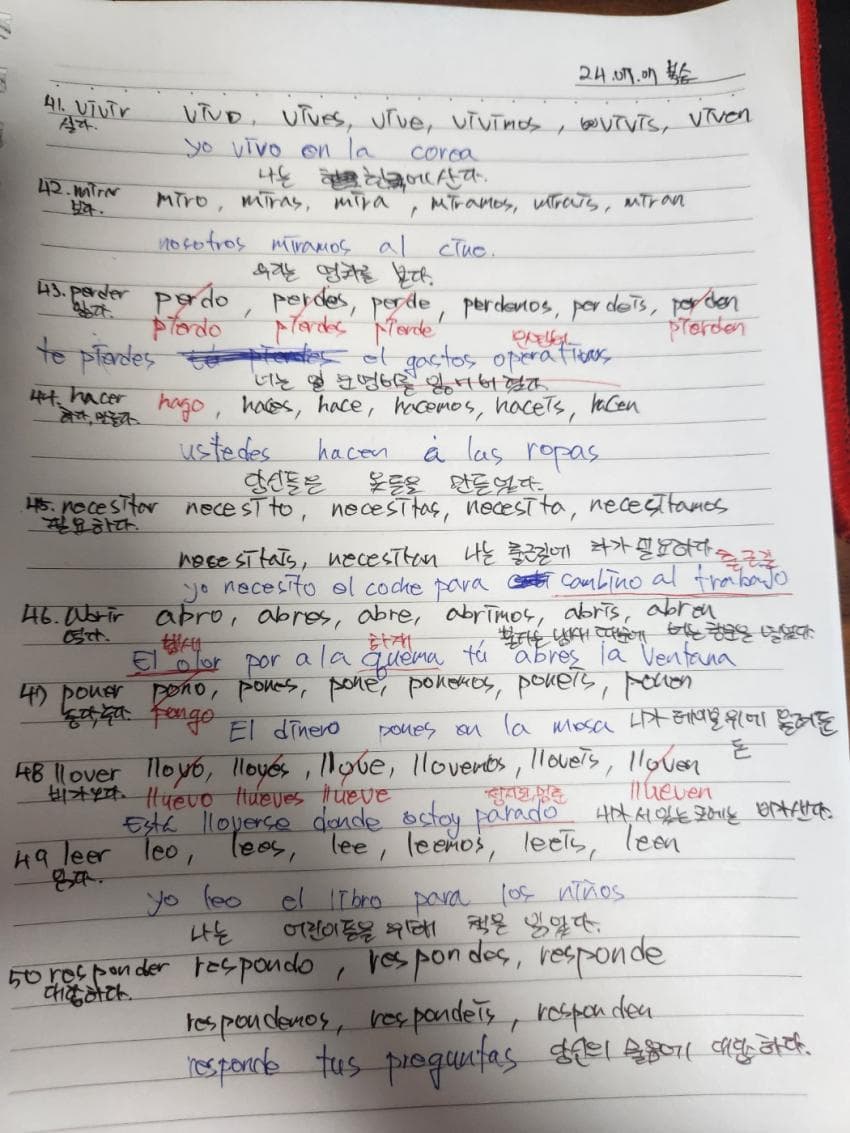 24.07.07 복습
41. vivir vivo, vives, vive, vivimos, vivis, viven
살다.
yo vivo en la corea
나는 한국에 산다.
42. mirar miro, miras, mira, miramos, mirais, miran
보다.
nosotros miramos al cine.
우리는 영화를 본다.
43. perder perdo, perdes, perde, perdemos, perdeis, perden
잃다.
pierdo pierdes pierde pierden
te pierdes el gastos operativos
44. hacer hago, haces, hace, hacemos, haceis, hacen
하다, 만들다.
ustedes hacen á las ropas
당신들은 옷들을 만들었다.
45. necesitar necesito, necesitas, necesita, necesitamos
필요하다.
necesitais, necesitan 나는 출근길에 차가 필요하다. 출근길
yo necesito el coche para cambino al trabajo
46. abrir abro, abres, abre, abrimos, abris, abren
열다.
냄새
El olor por a la quema tú abres la ventana
47 poner pono, pones, pone, ponemos, poneis, ponen
놓다, 두다. pongo
El dinero pones en la mesa 니가 테이블 위에 올려둔 돈
48 llover llovo, lloves, llove, llovemos, lloveis, lloven
비가오다. lluevo llueves llueve llueven
Está lloverse donde estoy parado 내가 서있는 곳에는
49 leer leo, lees, lee, leemos, leeis, leen
읽다.
yo leo el libro para los niños
나는 어린이들을 위해 책을 읽었다.
50 responder respondo, respondes, responde
대답하다.
respondemos, respondeis, responden
responde tus preguntas 당신의 질문에 대답하다.